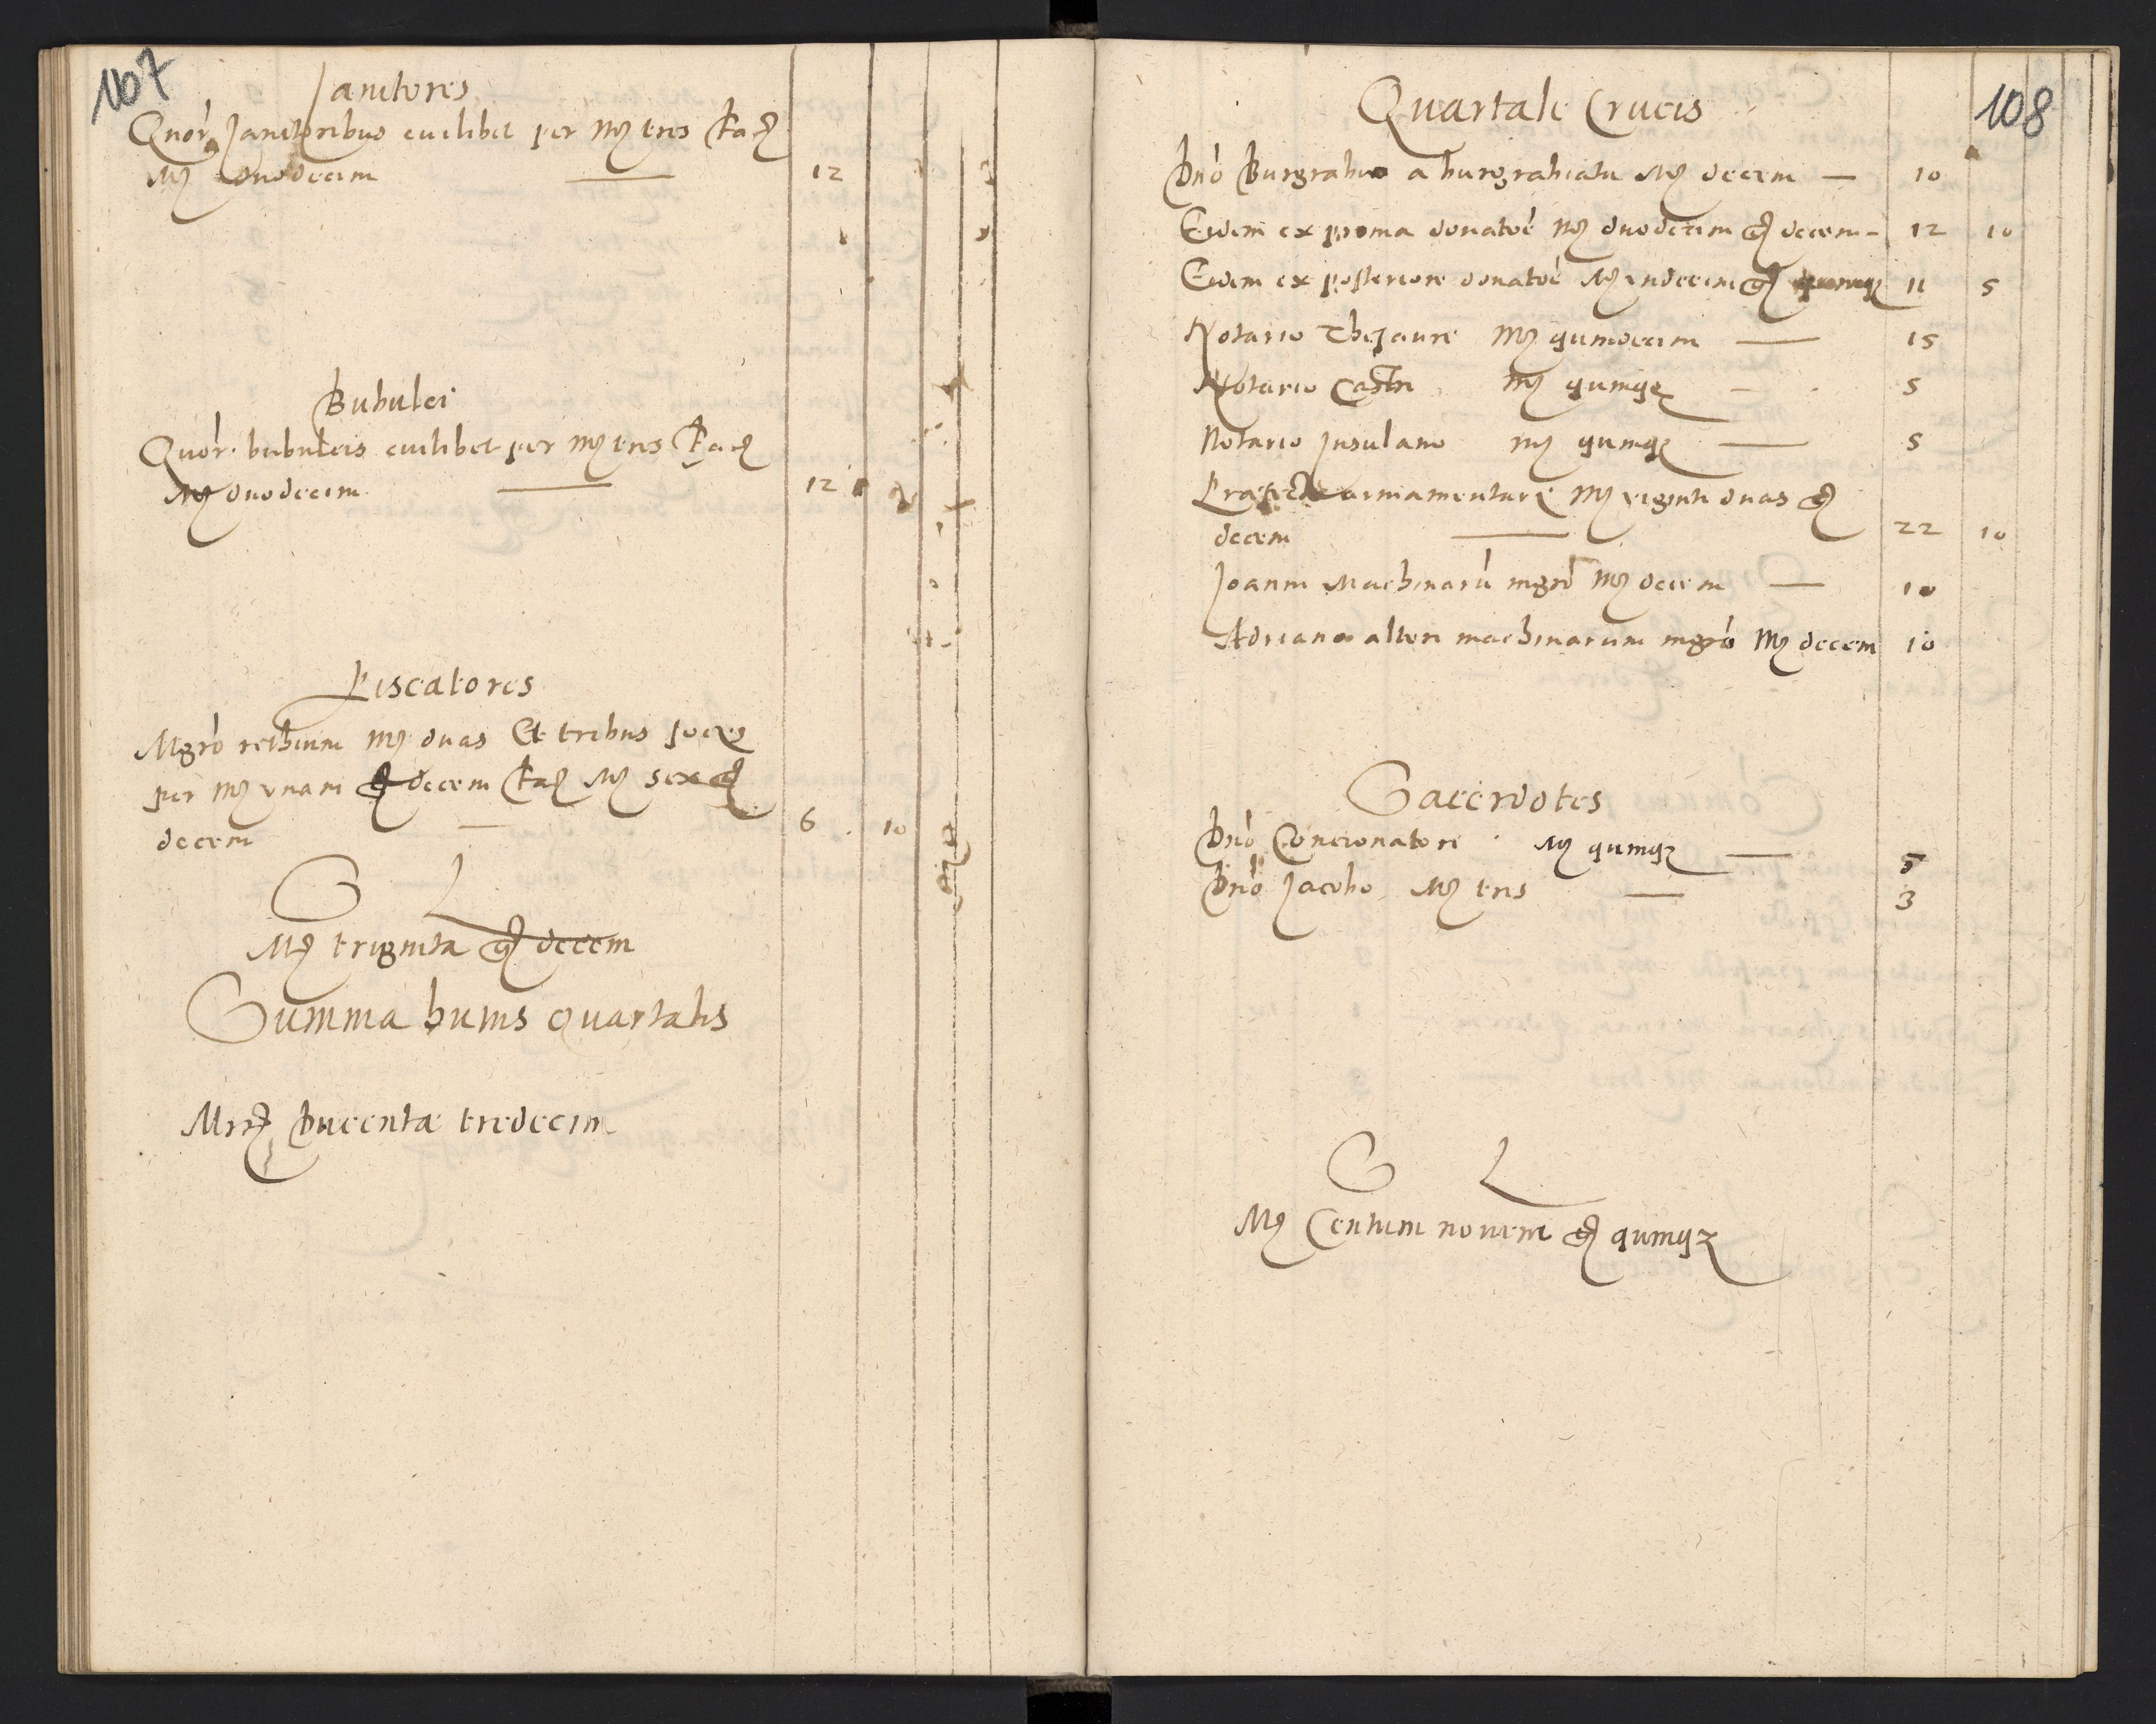 107
Janitores
Quor Janitoribus cuilibet per Mr tres fac
Mr duodecim — 12
Bubulci
Quor bubulcis cuilibet per Mr tres fac
Mr duodecim — 12
Piscatores
Mgro rethium Mr duas Et tribus socys
per Mr unam gr decem fac Mr sex gr
decem — 6 10
S L
Mr triginta gr decem
Summa huius quartalis
Mrr ducentæ tredecim
108
Quartale Crucis
Dno Burgrabio a burgrabiatu Mr decem — 10
Eidem ex prima donatoe Mr duodecim gr decem - 12 10
Eidem ex posteriore donatoe Mr undecim gr quinq 11 5
Notario Thesauri Mr quindecim — 15
Notario Castri Mr quinq — 5
Notario Insulano Mr quinq — 5
Præfecto armamentarii Mr viginti duas gr
decem — 22 10
Joanni Machinaru mgro Mr decem — 10
Adriano alteri machinarum mgro Mr decem 10
Sacerdotes
Dno Concionatori Mr quinq — 5
Dno Jacobo Mr tres — 3
S L
Mr Centum novem gr quinq